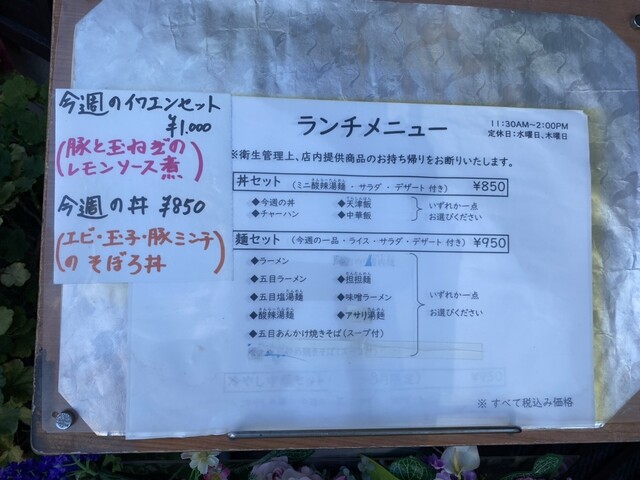 今週のイワエンセット
¥1,000
(豚と玉ねぎの
レモンソース煮)
今週の丼 ¥850
(エビ・玉子・豚ミンチ
のそぼろ丼)
ランチメニュー
11:30AM～2:00PM
定休日:水曜日、木曜日
※衛生管理上、店内提供商品のお持ち帰りをお断りいたします。
丼セット (ミニ酸辣湯麺・サラダ・デザート 付き) ¥850
◆今週の丼 ◆天津飯
◆チャーハン ◆中華飯
いずれか一点
お選びください
麺セット (今週の一品・ライス・サラダ・デザート 付き) ¥950
◆ラーメン
◆五目ラーメン ◆担担麺
◆五目塩湯麺 ◆味噌ラーメン
◆酸辣湯麺 ◆アサリ湯麺
◆五目あんかけ焼きそば(スープ付)
いずれか一点
お選びください
※ すべて税込み価格